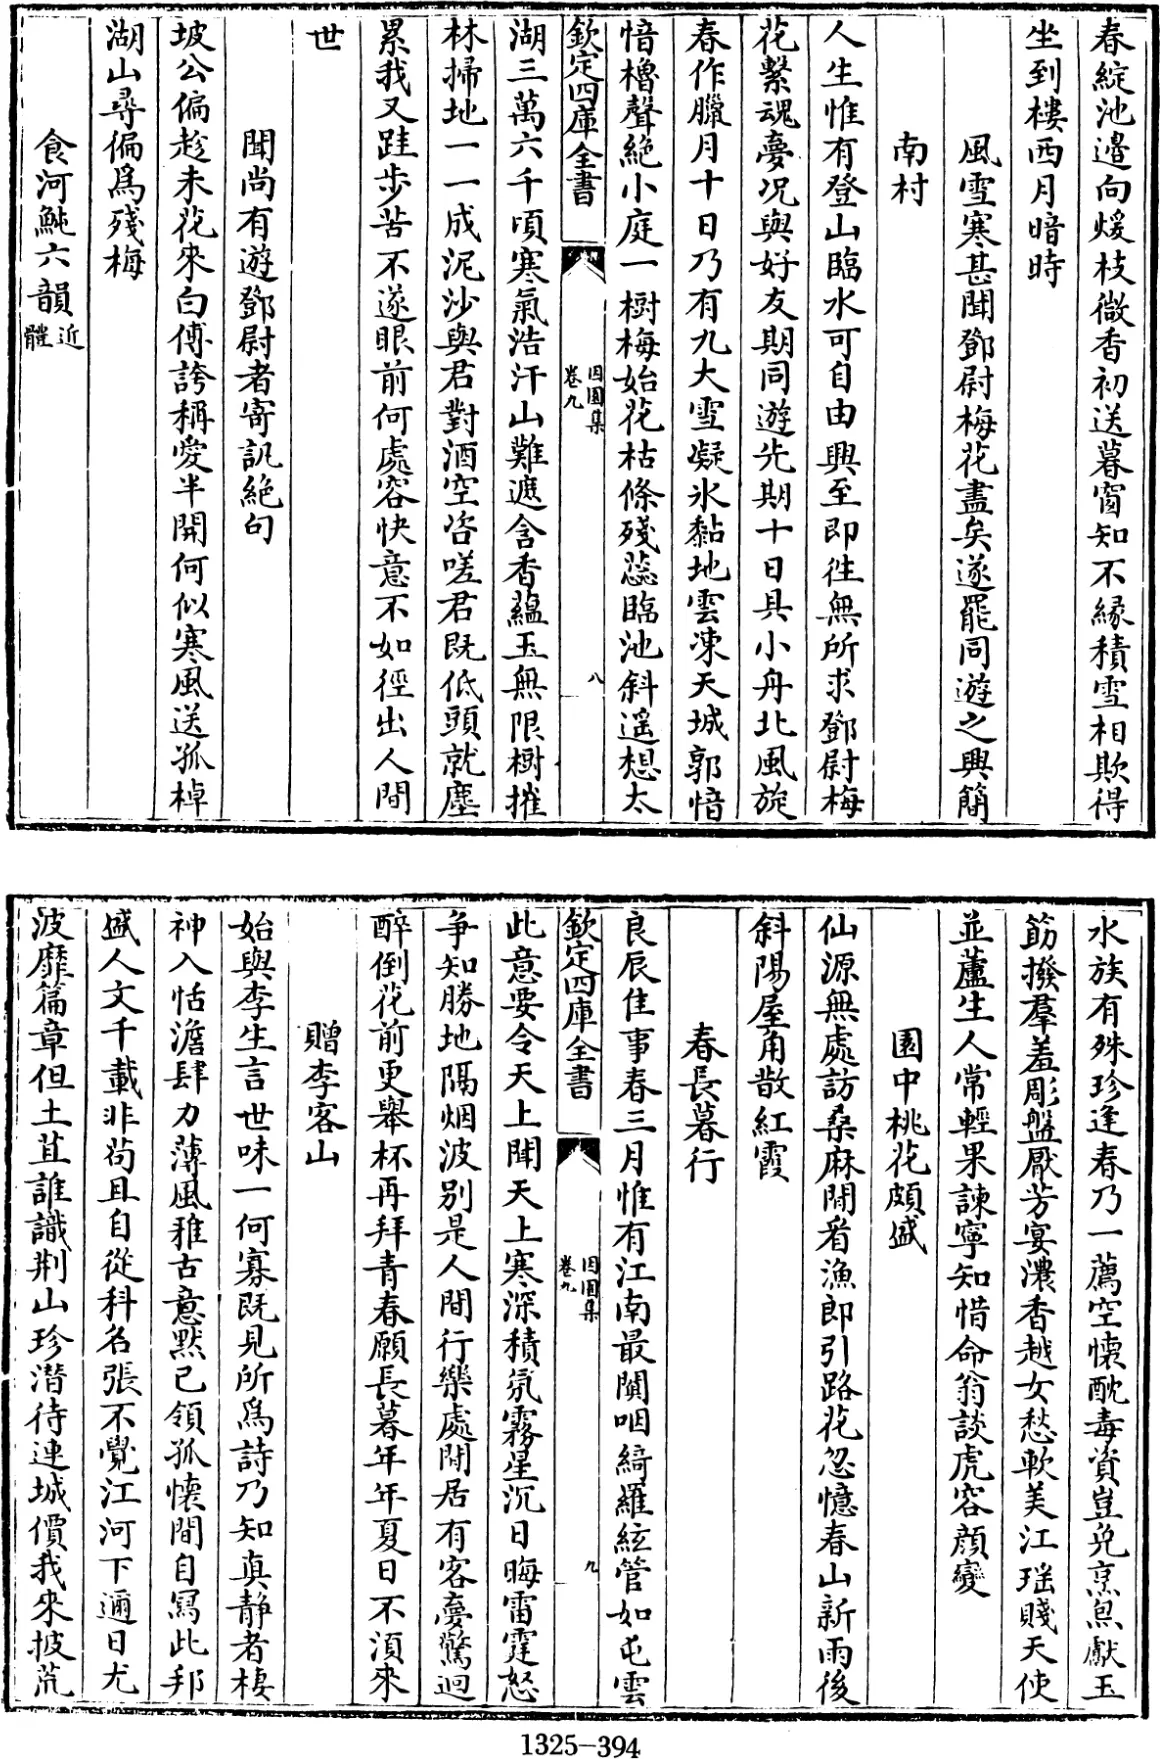 春綻池邊向煖枝微香初送暮窗知不緣積雪相欺得
坐到樓西月暗時
風雪寒甚聞鄧尉梅花盡矣遂罷同遊之興簡
南村
人生惟有登山臨水可自由興至即往無所求鄧尉梅
花繫魂夢况與好友期同遊先期十日具小舟北風旋
春作臘月十日乃有九大雪凝氷黏地雲凍天城郭愔
愔櫓聲絶小庭一樹梅始花枯條殘蕊臨池斜遥想太
欽定四庫全書
因園集
卷九
八
湖三萬六千頃寒氣浩汗山難遮含香藴玉無限樹摧
林掃地一一成泥沙與君對酒空咨嗟君既低頭就塵
累我又跬步苦不遂眼前何處容快意不如徑出人間
世
聞尚有遊鄧尉者寄訊絶句
坡公偏趁未花來白傅誇稱愛半開何似寒風送孤棹
湖山尋徧爲殘梅
食河魨六韻近體
水族有殊珍逢春乃一薦空懐酖毒資豈免烹魚獻玉
筯撥羣羞彫盤厭芳宴濃香越女愁軟美江瑶賤天使
並蘆生人常輕果諫寧知惜命翁談虎容顔變
園中桃花頗盛
仙源無處訪桑麻閒看漁郎引路花忽憶春山新雨後
斜陽屋角散紅霞
春長暮行
良辰佳事春三月惟有江南最闐咽綺羅絃管如屯雲
欽定四庫全書
因園集
卷九
九
此意要令天上聞天上寒深積氛霧星沉日晦雷霆怒
争知勝地隔烟波别是人間行樂處閒居有客夢驚迴
醉倒花前更舉杯再拜青春願長暮年年夏日不須來
贈李客山
始與李生言世味一何寡既見所爲詩乃知真静者棲
神入恬澹肆力薄風雅古意默已領孤懐間自寫此邦
盛人文千載非苟且自從科名張不覺江河下邇日尤
波靡篇章但土苴誰識荆山珍潛待連城價我來披荒
1325-394